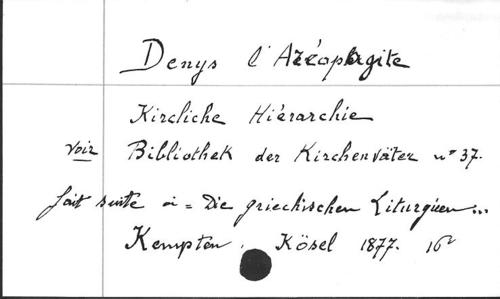 Denys l'Aréopagite
Kirchliche Hiérarchie
voir Bibliothek der Kirchenväter n° 37.
fait suite à = Die griechischen Liturgieen...
Kempten, Kösel 1877. 16°